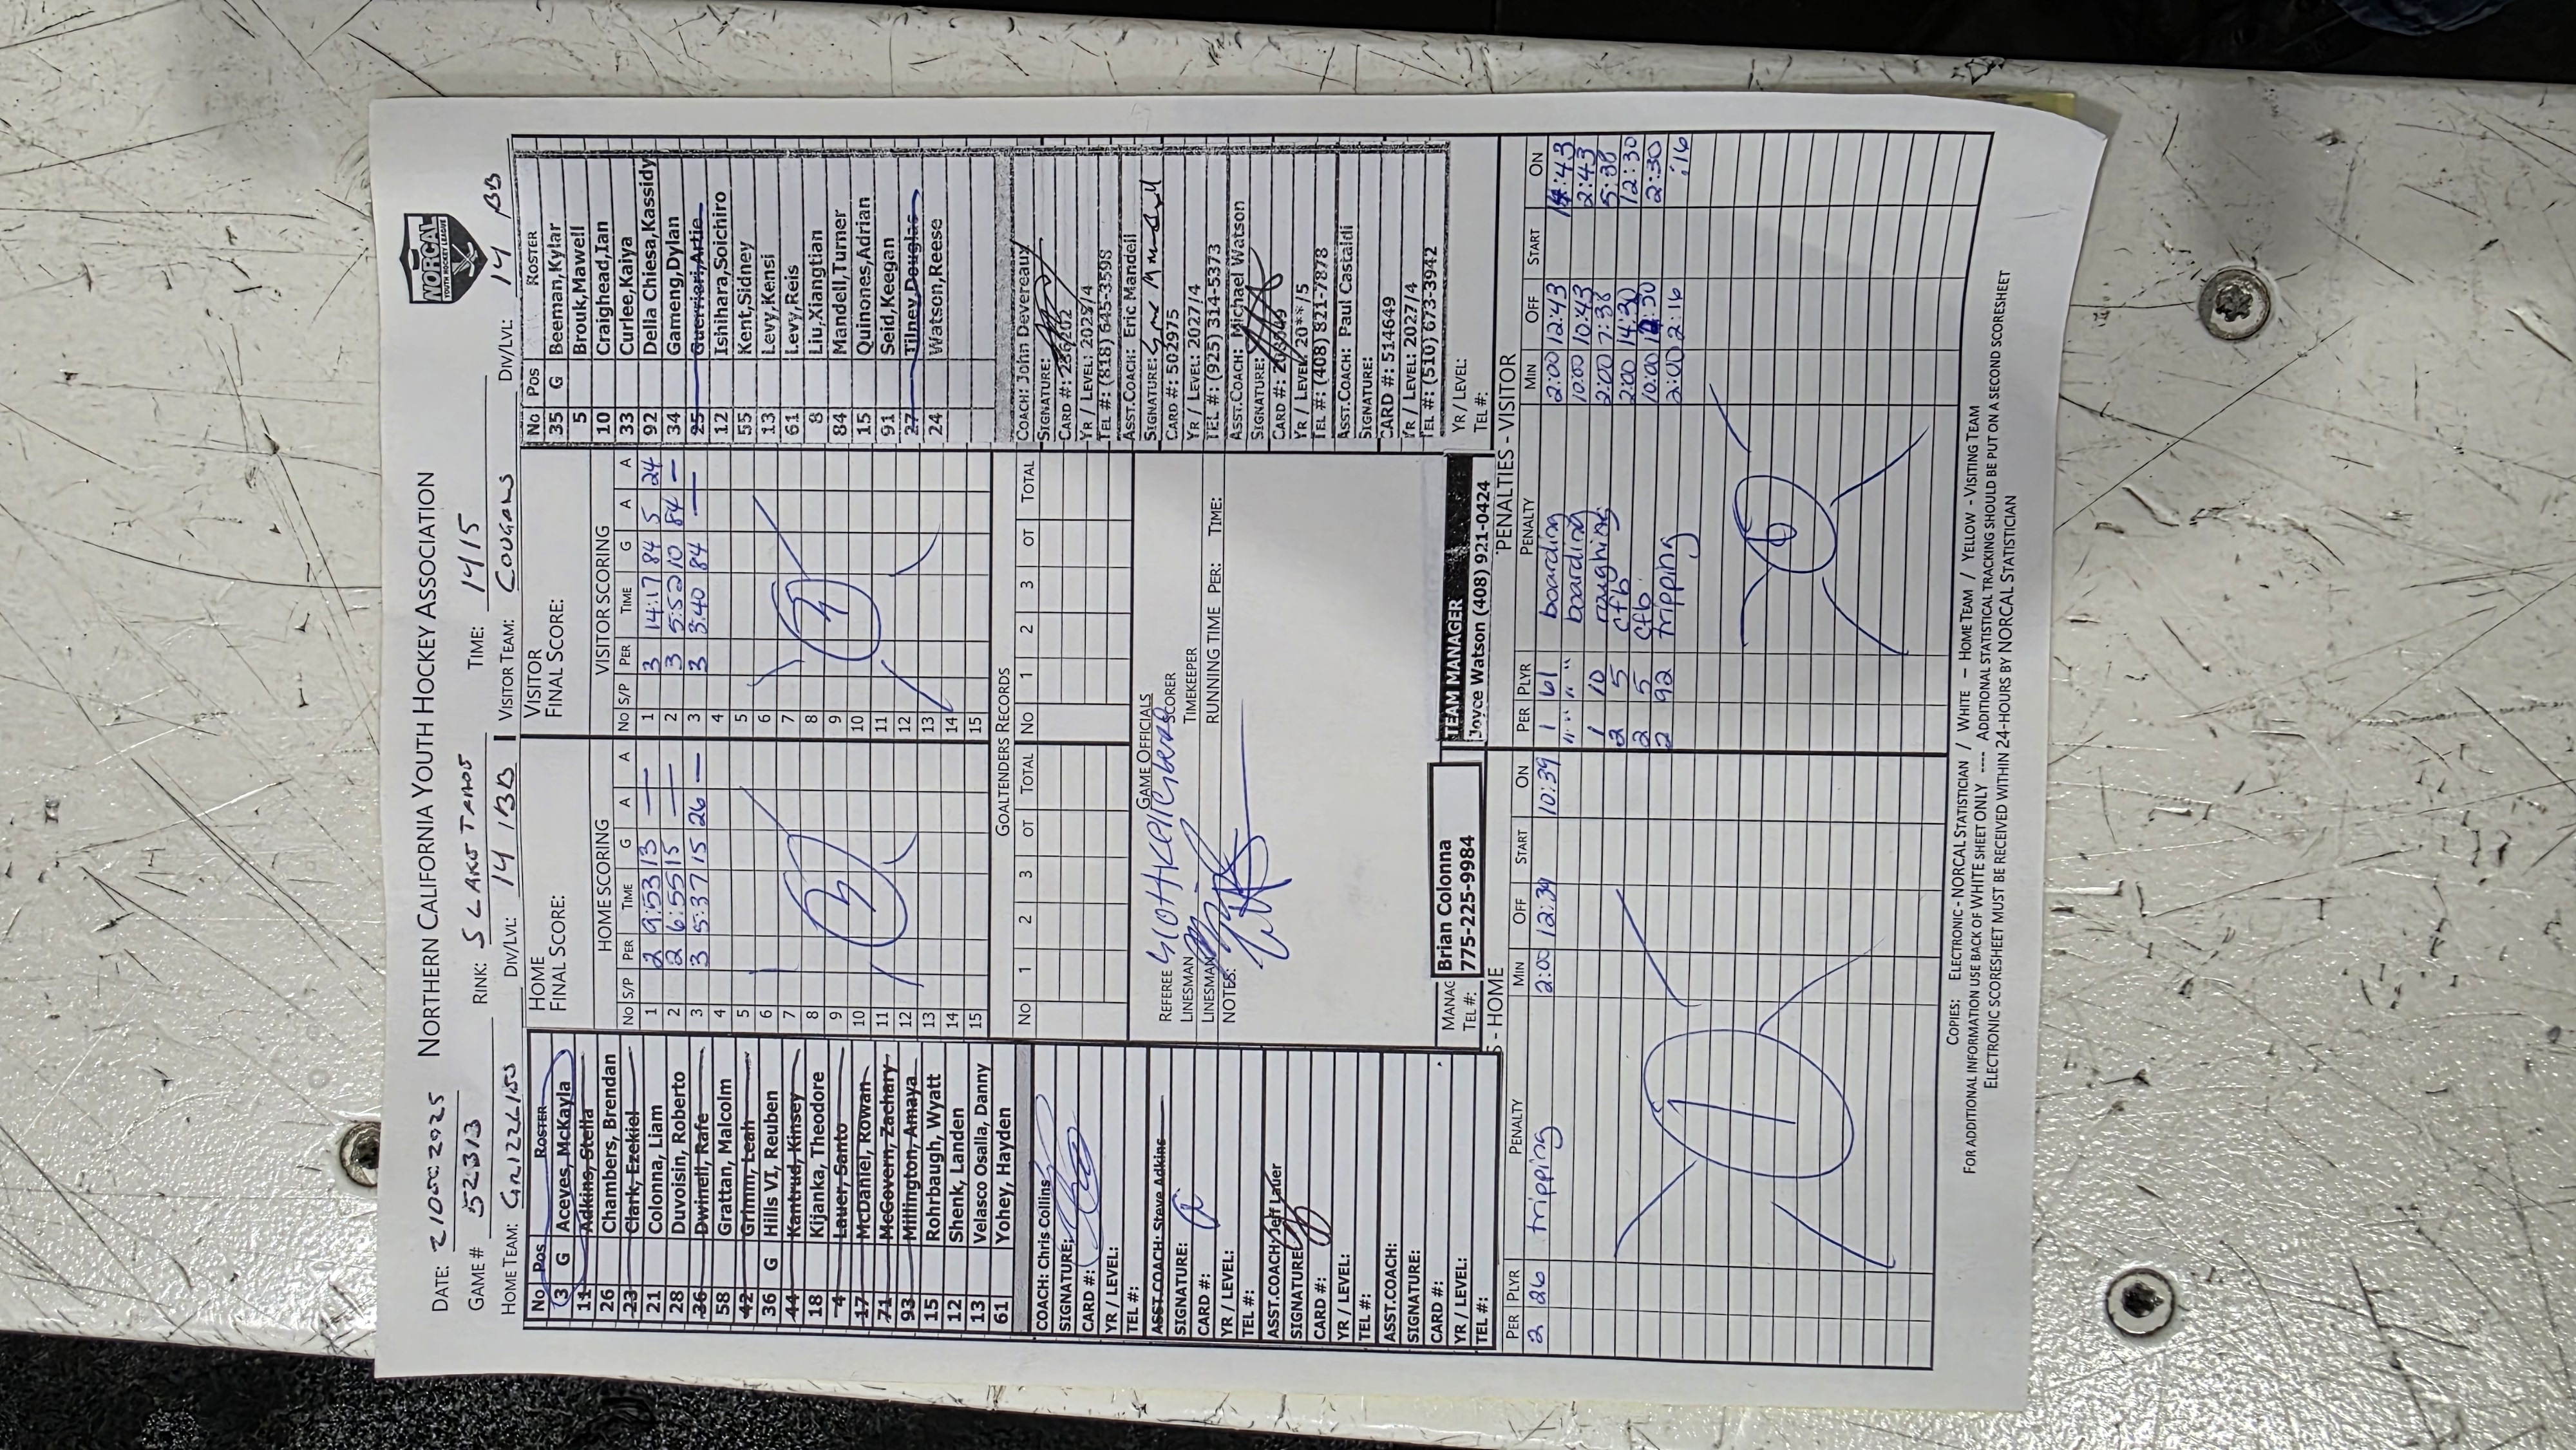 NORCAL
YOUTH HOCKEY LEAGUE
NORTHERN CALIFORNIA YOUTH HOCKEY ASSOCIATION
DATE: 21 DEC 2025
GAME # 52313 RINK: S LAKE TAHOE TIME: 1415
HOME TEAM: GRIZZLIES DIV/LVL: 14 BB VISITOR TEAM: COUGARS DIV/LVL: 14 BB
No Pos ROSTER
3 G Aceves, McKayla
11 Adkins, Stella
26 Chambers, Brendan
23 Clark, Ezekiel
21 Colonna, Liam
28 Duvoisin, Roberto
36 Dwinell, Rafe
58 Grattan, Malcolm
42 Grimm, Leah
36 G Hills VI, Reuben
44 Kantrud, Kinsey
18 Kijanka, Theodore
4 Lauer, Santo
17 McDaniel, Rowan
71 McGovern, Zachary
93 Millington, Amaya
15 Rohrbaugh, Wyatt
12 Shenk, Landen
13 Velasco Osalla, Danny
61 Yohey, Hayden
COACH: Chris Collins
SIGNATURE:
CARD #:
YR / LEVEL:
TEL #:
ASST.COACH: Steve Adkins
SIGNATURE:
CARD #:
YR / LEVEL:
TEL #:
ASST.COACH: Jeff Lauer
SIGNATURE:
CARD #:
YR / LEVEL:
TEL #:
ASST.COACH:
SIGNATURE:
CARD #:
YR / LEVEL:
TEL #:
HOME
FINAL SCORE:
HOME SCORING
No S/P PER TIME G A A
1 2 9:53 13 — —
2 2 6:55 15 — —
3 3 5:37 15 26 —
4
5
6
7
8
9
10
11
12
13
14
15
3
VISITOR
FINAL SCORE:
VISITOR SCORING
No S/P PER TIME G A A
1 3 14:17 84 5 24
2 3 5:52 10 84 —
3 3 3:40 84 — —
4
5
6
7
8
9
10
11
12
13
14
15
3
GOALTENDERS RECORDS
No 1 2 3 OT TOTAL No 1 2 3 OT TOTAL
GAME OFFICIALS
REFEREE SCORER
LINESMAN TIMEKEEPER
LINESMAN RUNNING TIME PER: TIME:
NOTES:
No Pos ROSTER
35 G Beeman,Kylar
5 Brouk,Mawell
10 Craighead,Ian
33 Curlee,Kaiya
92 Della Chiesa,Kassidy
34 Gameng,Dylan
25 Guerrieri,Artie
12 Ishihara,Soichiro
55 Kent,Sidney
13 Levy,Kensi
61 Levy,Reis
8 Liu,Xiangtian
84 Mandell,Turner
15 Quinones,Adrian
91 Seid,Keegan
27 Tilney,Douglas
24 Watson,Reese
COACH: John Devereaux
SIGNATURE:
CARD #:
YR / LEVEL: 2028/4
TEL #: (818) 645-3598
ASST.COACH: Eric Mandell
SIGNATURE:
CARD #: 502975
YR / LEVEL: 2027/4
TEL #: (925) 314-5373
ASST.COACH: Michael Watson
SIGNATURE:
CARD #:
YR / LEVEL: 20**/5
TEL #: (408) 821-7878
ASST.COACH: Paul Castaldi
SIGNATURE:
CARD #: 514649
YR / LEVEL: 2027/4
TEL #: (510) 673-3942
YR / LEVEL:
TEL #:
MANAG Brian Colonna
TEL #: 775-225-9984
TEAM MANAGER
Joyce Watson (408) 921-0424
S - HOME
PER PLYR PENALTY MIN OFF START ON
2 26 tripping 2:00 12:39 10:39
1
PENALTIES - VISITOR
PER PLYR PENALTY MIN OFF START ON
1 61 boarding 2:00 12:43 :43
" " " " boarding 10:00 10:43 2:43
1 10 roughing 2:00 7:38 5:38
2 5 cfb 2:00 14:30 12:30
2 5 cfb 10:00 12:30 2:30
2 92 tripping 2:00 2:16 :16
6
COPIES: ELECTRONIC - NORCAL STATISTICIAN / WHITE – HOME TEAM / YELLOW - VISITING TEAM
FOR ADDITIONAL INFORMATION USE BACK OF WHITE SHEET ONLY ---- ADDITIONAL STATISTICAL TRACKING SHOULD BE PUT ON A SECOND SCORESHEET
ELECTRONIC SCORESHEET MUST BE RECEIVED WITHIN 24-HOURS BY NORCAL STATISTICIAN